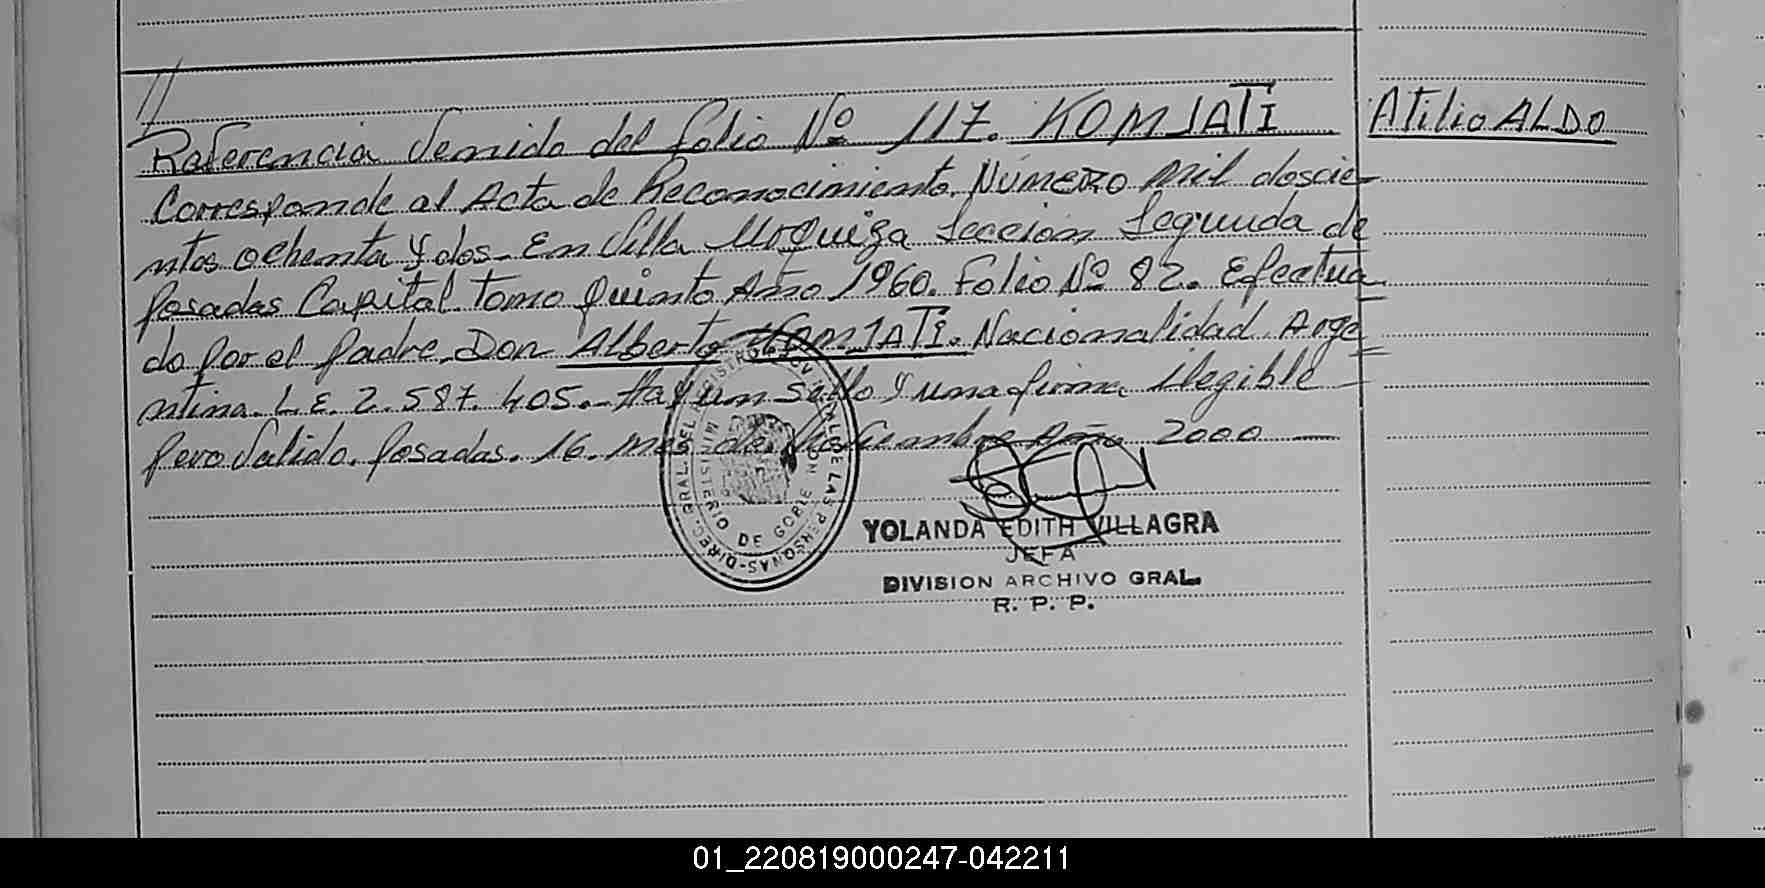 //
Referencia Venida del folio Nº 117. KOMJATI Atilio ALDO
Corresponde al Acta de Reconocimiento. NÚMERO Mil doscie-
ntos ochenta y dos. En Villa Urquiza Sección Segunda de
Posadas Capital. Tomo Quinto Año 1960. Folio Nº 82. Efectua
do Por el Padre. Don Alberto KOMJATI. Nacionalidad Arge
ntina. L.E. 2.587.405.- Hay un sello y una firma ilegible
Pero Valido. Posadas. 16. mes de Noviembre Año 2000
DIREC. GRAL. DEL REGISTRO PROV. DE LAS PERSONAS
MINISTERIO DE GOBIERNO
YOLANDA EDITH VILLAGRA
JEFA
DIVISION ARCHIVO GRAL.
R. P. P.
01_220819000247-042211